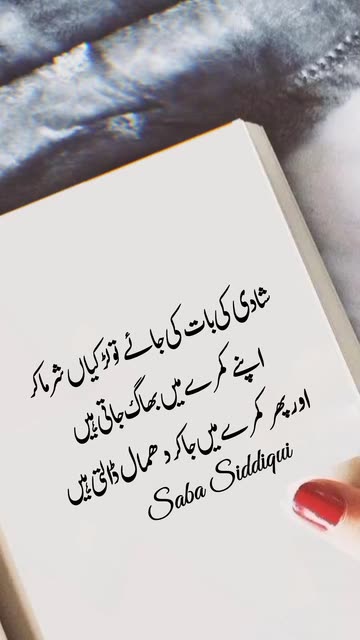 شادی کی بات کی جائے تو لڑکیاں شرما کر
اپنے کمرے میں بھاگ جاتی ہیں
اور پھر کمرے میں جا کر دھمال ڈالتی ہیں
Saba Siddiqui